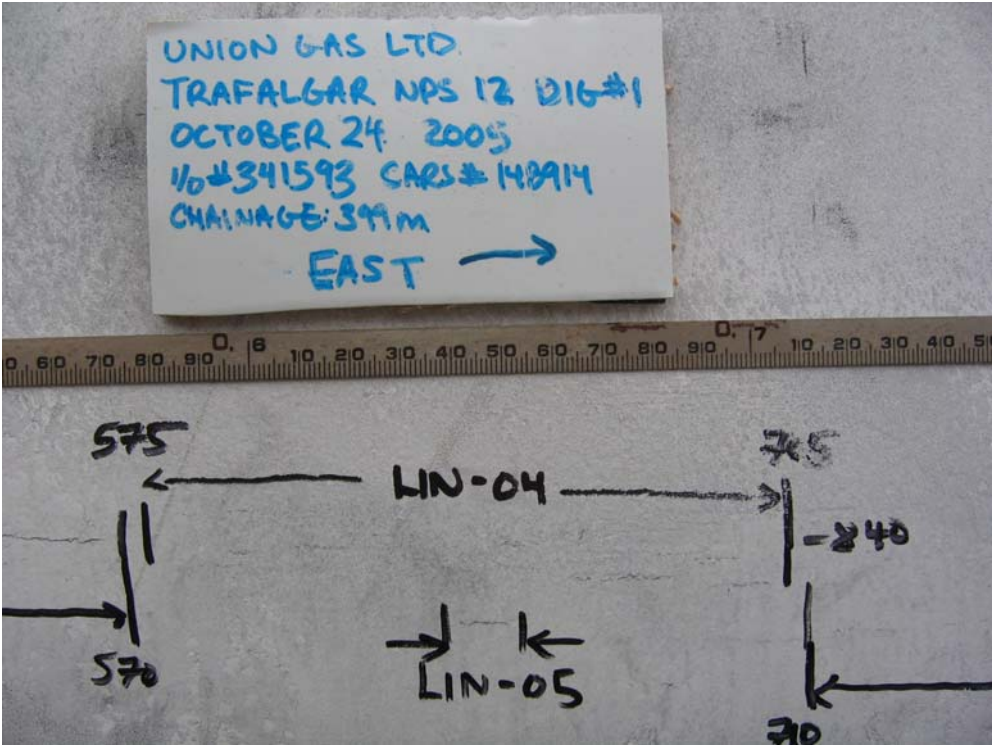 UNION GAS LTD.
TRAFALGAR NPS 12 DIG#1
OCTOBER 24 2005
I/O#341593 CARS#148914
CHAINAGE: 399m
EAST
0 60 70 80 90 0,6 10 20 30 40 50 60 70 80 90 0,7 10 20 30 40 50
575
705
LIN-04
570
LIN-05
710